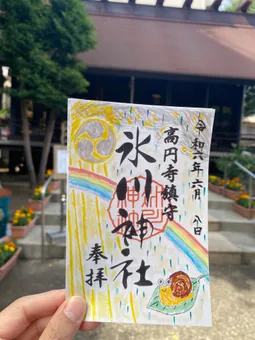 令和六年六月八日
高円寺鎮守
氷川神社
奉拝